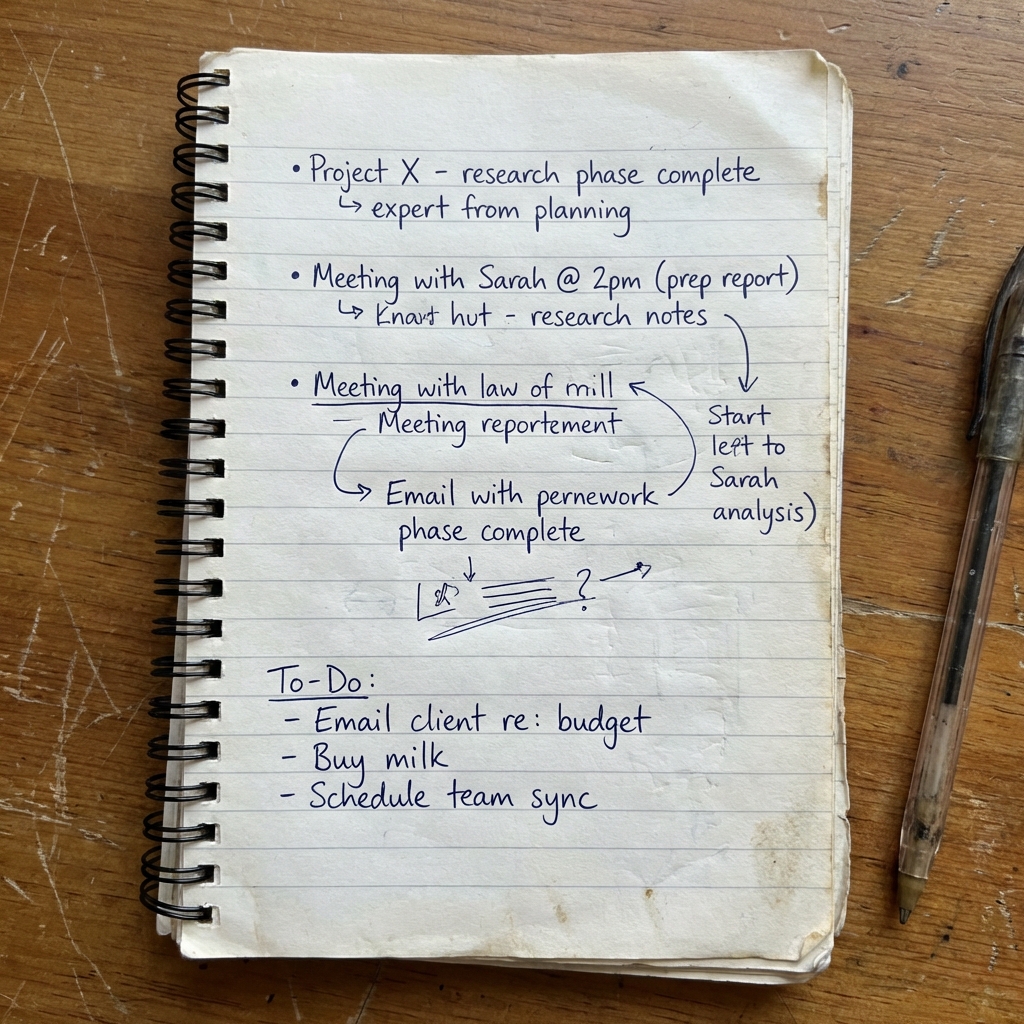 • Project X - research phase complete
↳ expert from planning
• Meeting with Sarah @ 2pm (prep report)
↳ hut - research notes
Start
left to
Sarah
analysis)
• Meeting with law of mill
- Meeting reportement
Email with pernework
phase complete
?
To-Do:
- Email client re: budget
- Buy milk
- Schedule team sync